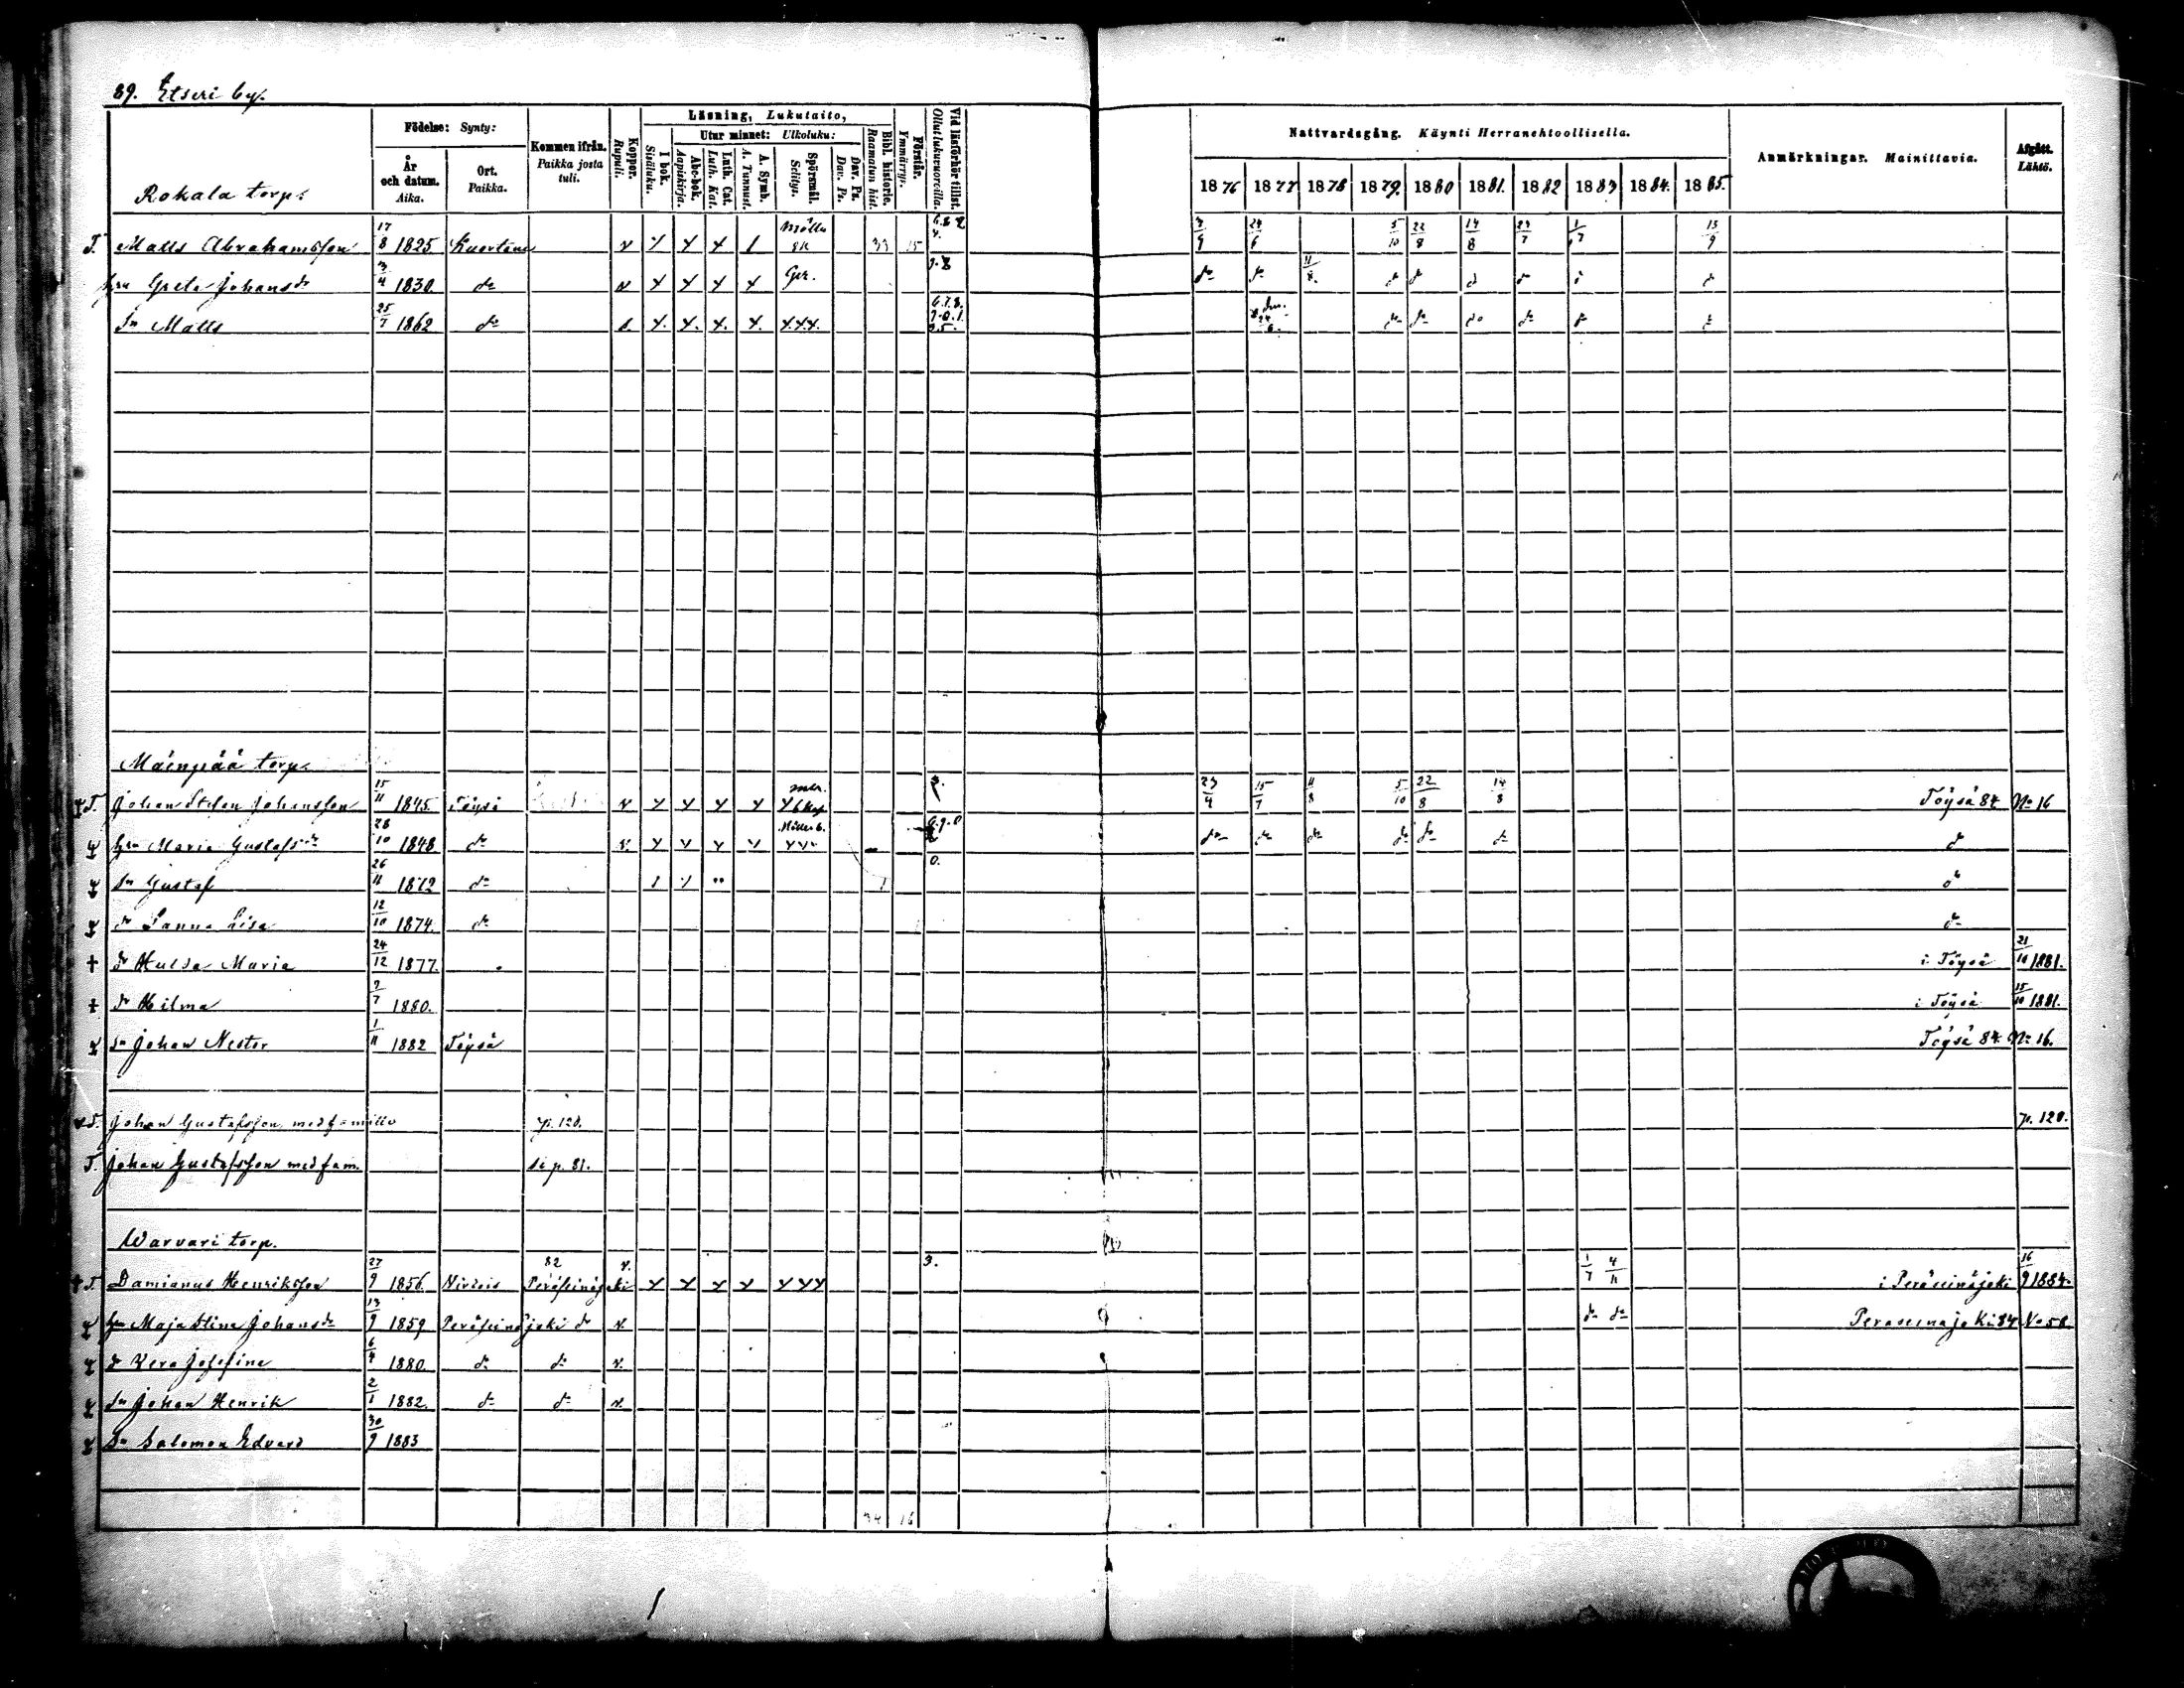 89. Etseri by.
Födelse: Synty:
År och datum. Aika.
Ort. Paikka.
Kommen ifrån. Paikka josta tuli.
Koppor. Rupuli.
Läsning, Lukutaito,
I bok. Sisäluku.
Utur minnet: Ulkoluku:
Abc-bok. Aapiskirja.
Luth. Cat. Luth. Kat.
A. Symb. A. Tunnust.
Spörsmål. Selitys.
Dav. Ps. Dav. Ps.
Bibl. historie. Raamatun hist.
Förstår. Ymmärrys.
Vid läsförhör tillst. Ollut lukuvuoroilla.
Nattvardsgång. Käynti Herranehtoollisella.
1876 1877 1878 1879. 1880 1881. 1882 1883 1884. 1885.
Anmärkningar. Mainittavia.
Afgått. Lähtö.
Rokala torp:
T. Matts Abrahamsson 17/8 1825 Kuortane 33 15 24/6 5/10 22/8 14/8 1/7 15/9
hu Greta Johansdr 3/4 1830. do
Sn Matts 25/7 1862 do
Mäenpää torp.
T. Johan Stefan Johansson 15/11 1845. Töysä 23/4 15/7 11/8 5/10 22/8 14/8 Töysä 84 No 16
hu Maria Gustafsdr 28/10 1848 do do do do do do do do
Sn Gustaf 26/11 1872 do do
dr Sanna Lisa 12/10 1874. do do
† dr Hulda Maria 24/12 1877. i Töysä 21/10 1881.
† dr Hilma 2/7 1880. i Töysä 15/10 1881.
Sn Johan Nestor 1/11 1882 Töysä Töysä 84 No 16.
T. Johan Gustafsson med familie p. 120. p. 120.
T. Johan Gustafsson med fam. se p. 81.
Warvari torp.
† T. Damianus Henriksson 27/9 1856. Virdois 82 Peräseinäjoki 3. 1/7 4/11 i Peräseinäjoki 16/9 1884.
hu Maja Stina Johansdr 13/9 1859 Peräseinäjoki do do do Peraseinajoki 84 No 58
dr Vera Josefina 6/4 1880. do do
Sn Johan Henrik 2/1 1882. do do
Sn Salomon Edvard 30/9 1883
34 16